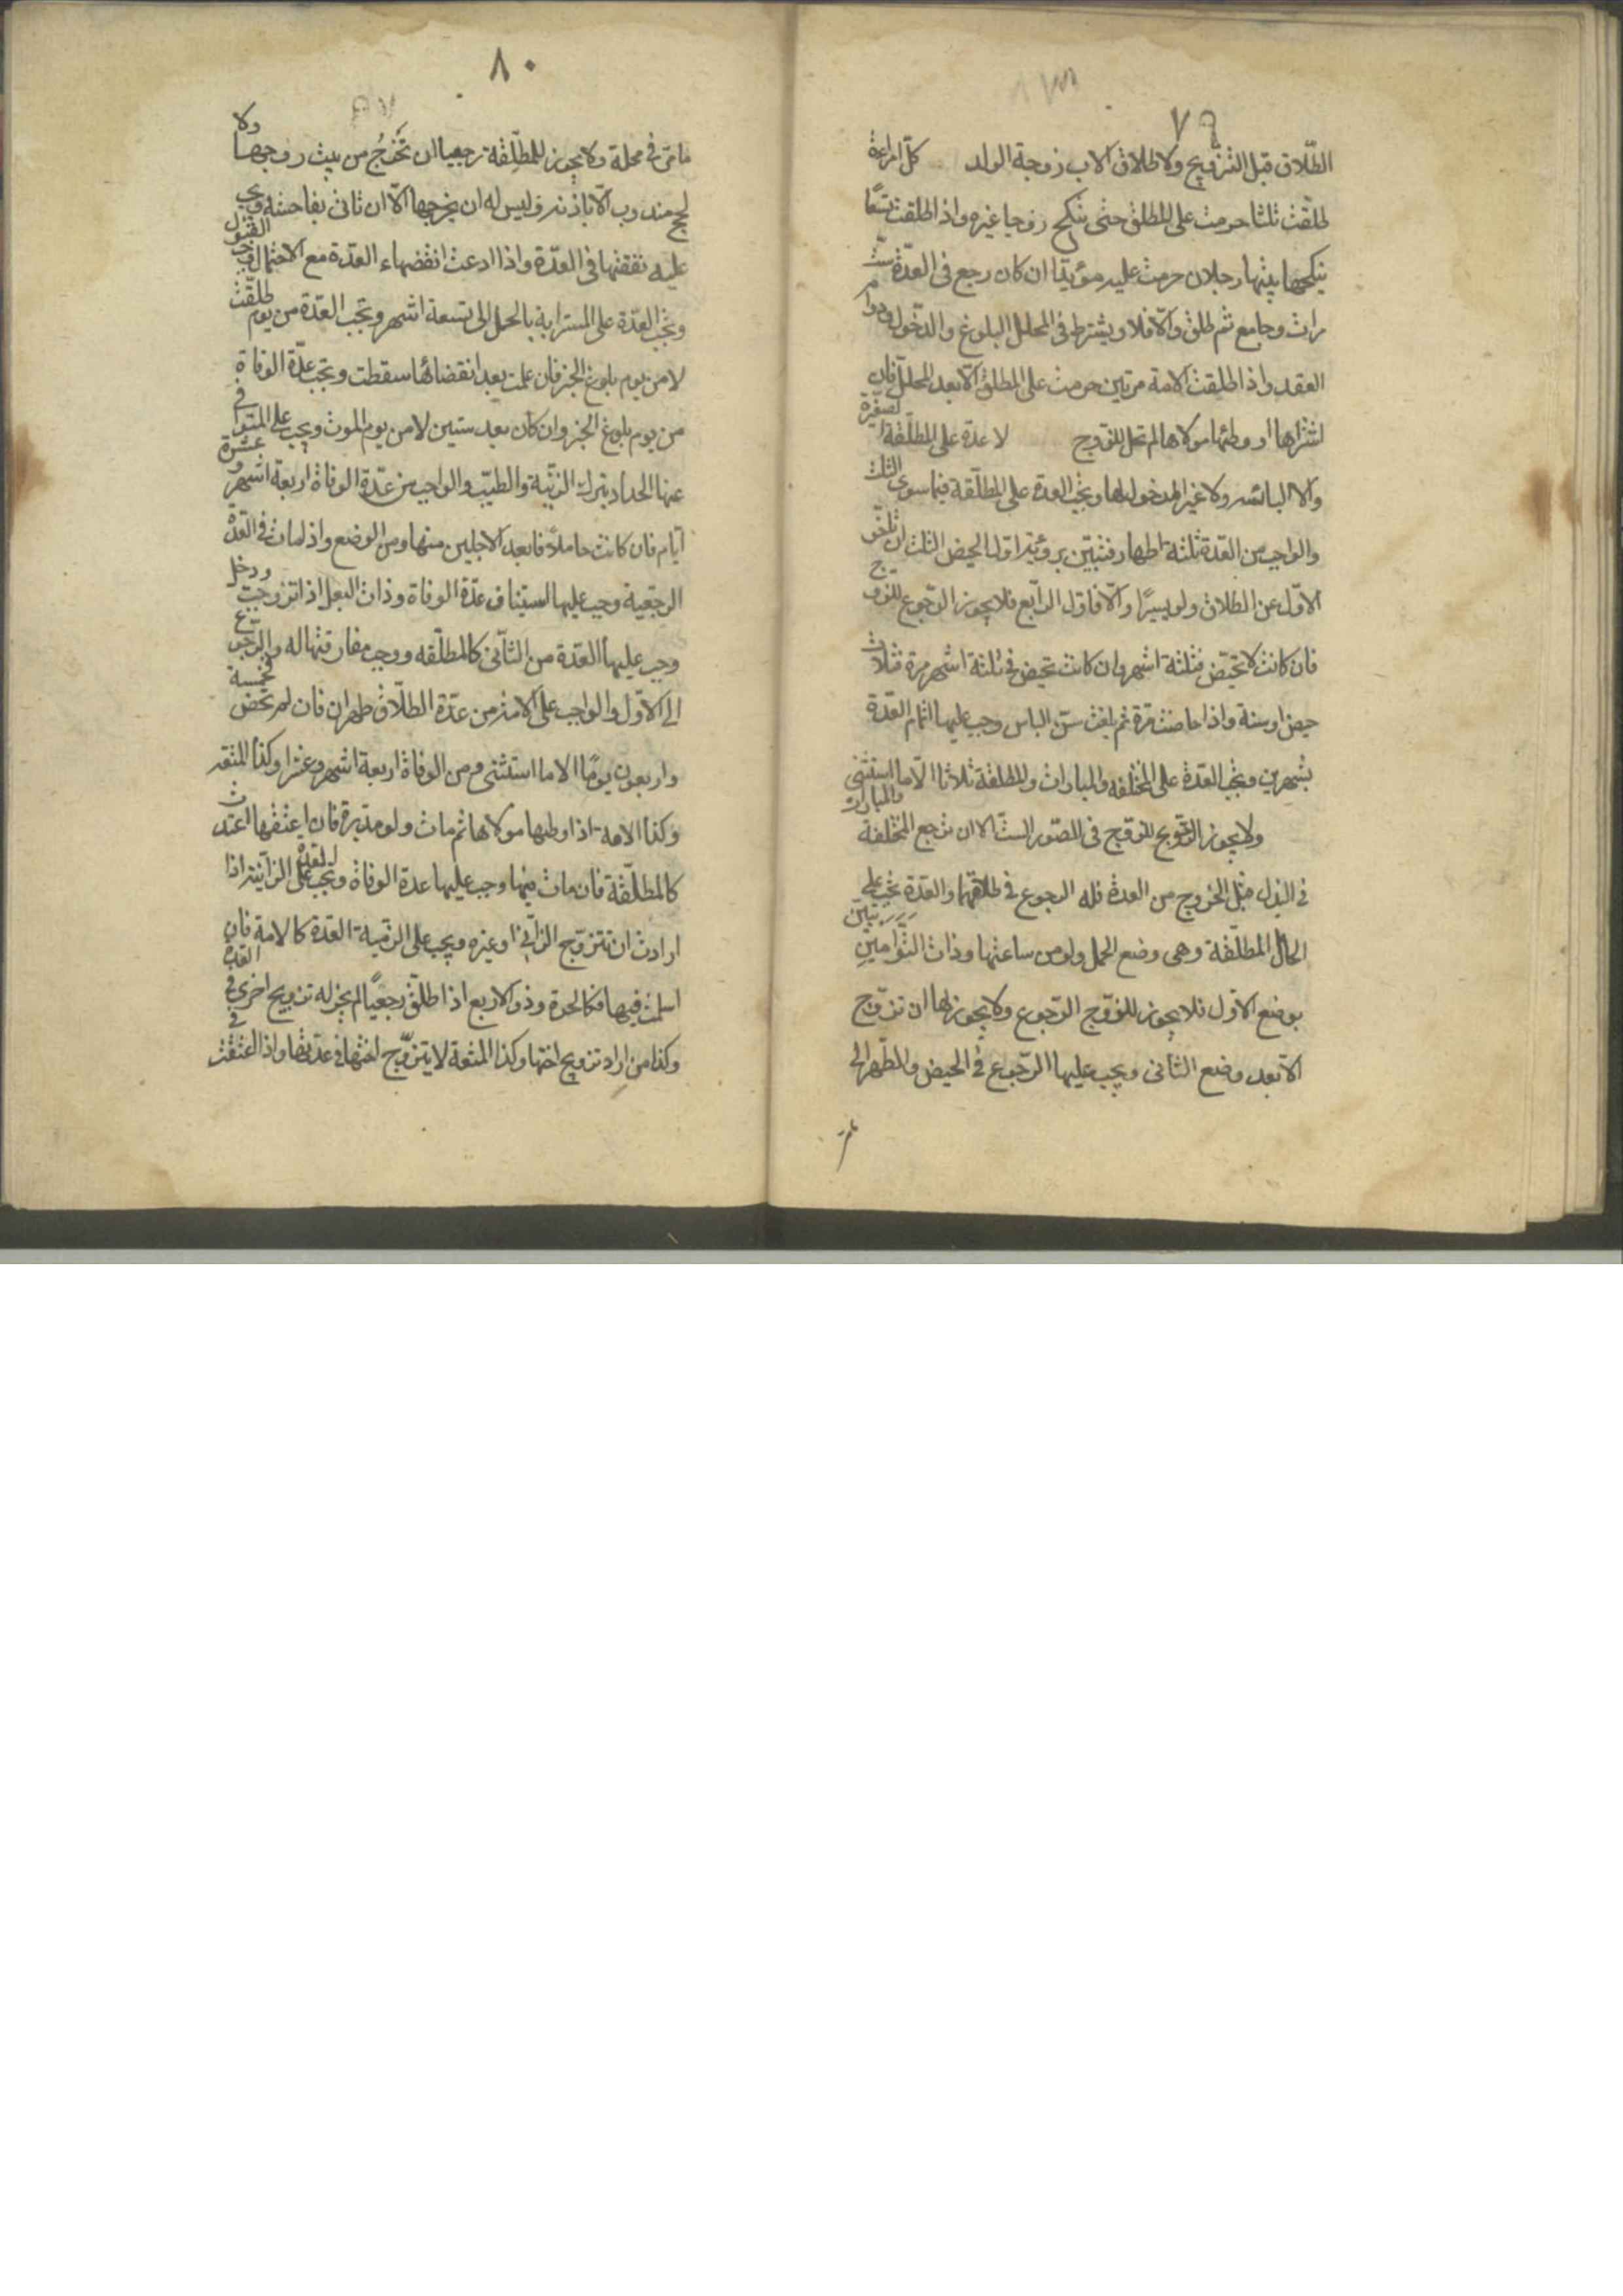 ٧٩
الطّلاق قبل التزويج ولا طلاق الاب زوجة الولد كلّ امراءة
طلّقت ثلثا حرمت على المطلق حتى تنكح زوجا غيره واذا طلقت تسعًا
ينكحها بينها رجلان حرمت عليه مؤبدًا ان كان رجع في العدّة ستّ
مرات وجامع ثم طلق والّا فلا ويشترط في المحلل البلوغ والدّخول ودوام
العقد واذا طلقت الامة مرتين حرمت على المطلق الّا بعد المحلل فان
اشتراها او وطئها مولاها لم تحل للزوج لا عدة على المطلّقة الصغيرة
ولا اليائسه ولا غير المدخول بها ويجب العدة على المطلّقة فيما سوى الثلث
والواجب من العّدة ثلثة اطهار فتبين برؤية اول الحيض الثلث ان تاخّر
الاوّل عن الطلاق ولو يسيرًا والّا فاول الرّابع فلا يجوز الرّجوع للزوج
فان كانت لا تحيض فثلثة اشهر وان كانت تحيض في ثلثة اشهر مرة فثلاث
حيض او سنة واذا حاضت مرّة ثم بلغت سنّ الياس وجب عليها اتمام العدّة
بشهرين ويجب العدّة على المختلعه والمبارات والمطلقة ثلاثا الّا ما استثنى
ولا يجوز الرجوع للزوج في الصّور الستّ الا ان ترجع المختلعة والمبارات
في البذل قبل الخروج من العدة فله الرجوع في طلاقهما والعدّة تجب على
الحامل المطلّقة وهي وضع الحمل ولو من ساعتها وذات التّوامين تبين
بوضع الاوّل فلا يجوز للزّوج الرّجوع ولا يجوز لها ان تزوّج
الّا بعد وضع الثاني ويجب عليها الرّجوع في الحيض والطّهر الى
ما مرّ
٨٠
ما مرّ في محلّه ولا يجوز للمطلّقة رجعيا ان تخرُج من بيت زوجها ولا
لحج مندوب الّا باذنه وليس له ان يخرجها الّا ان تاتى بفاحشة ويجب
عليه نفقتها في العدّة واذا ادعت انقضاء العدّة مع الاحتمال وجب القبول
وتجب العدّة على المسترابة بالحمل الى تسعة اشهر وتجب العّدة من يوم طلّقت
لا من يوم بلوغ الخبر فان علمت بعد انقضائها سقطت وتجب عدّة الوفاة
من يوم بلوغ الخبر وان كان بعد سنين لا من يوم الموت ويجب على المتوفى
عنها الحداد بترك الزّينة والطيب والواجب من عدّة الوفاة اربعة اشهر وعشرة
ايّام فان كانت حاملًا فابعد الاجلين منها ومن الوضع واذا مات في العّدة
الرجعية وجب عليها استيناف عدّة الوفاة وذات البعل اذا تزوجت ودخل
وجب عليها العّدة من الثّاني كالمطلّقه ووجب مفارقتها له والرّجوع
الى الاوّل والواجب على الامة من عدّة الطّلاق طهران فان لم تحض فخمسة
واربعون يومًا الا ما استثنى ومن الوفاة اربعة اشهر وعشرا وكذا المتعة
وكذا الامه اذا وطيها مولاها ثم مات ولو مدبرة فان اعتقها اعتدت
كالمطلّقة فان مات فيها وجب عليها عدة الوفاة وتجب العّدة على الزّانية اذا
ارادت ان تتزوّج الزاني او غيره ويجب على الذمّية العّدة كالامة فان
اسلمت فيها فكالحرة وذو الاربع اذا طلّق رجعيًا لم يجز له تزويج اخرى في العدة
وكذا من اراد تزويج اختها وكذا المتعة لا يتزوّج اختها في عدّتها واذا اعتقت في